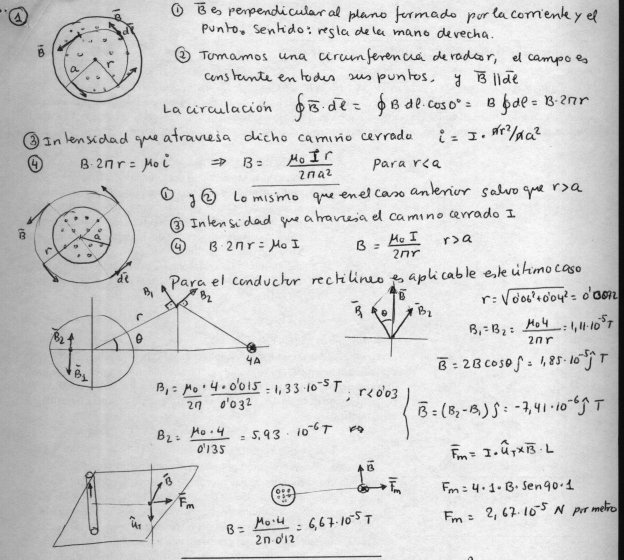 ①
① B̄ es perpendicular al plano formado por la corriente y el
punto. Sentido: regla de la mano derecha.
② Tomamos una circunferencia de radio r, el campo es
constante en todos sus puntos, y B̄ ∥ d̄l
B̄ B̄ d̄l a r
La circulación ∮ B̄·d̄l = ∮ B dl·cos0° = B ∮ dl = B·2πr
③ Intensidad que atraviesa dicho camino cerrado i = I·πr²/πa²
④ B·2πr = μ₀i ⇒ B = μ₀Ir/2πa² para r<a
① y ② Lo mismo que en el caso anterior salvo que r>a
③ Intensidad que atraviesa el camino cerrado I
④ B·2πr = μ₀I B = μ₀I/2πr r>a
B̄ r a d̄l
Para el conductor rectilíneo es aplicable este último caso
B₁ B₂ r θ B̄₂ B̄₁ 4A
B̄₁ θ B̄ B̄₂
r = √0'06²+0'04² = 0'072
B₁=B₂ = μ₀4/2πr = 1,11·10⁻⁵ T
B̄ = 2B cosθ ĵ = 1,85·10⁻⁵ ĵ T
B₁ = μ₀/2π · 4·0'015/0'03² = 1,33·10⁻⁵ T ; r<0'03
B₂ = μ₀·4/0'135 = 5,93·10⁻⁶ T
B̄ = (B₂-B₁) ĵ = -7,41·10⁻⁶ ĵ T
F̄m = I·û_T×B̄·L
Fm = 4·1·B·sen90·1
Fm = 2,67·10⁻⁵ N por metro
B̄ F̄m û_T
B̄ F̄m
B = μ₀·4/2π0'12 = 6,67·10⁻⁵ T